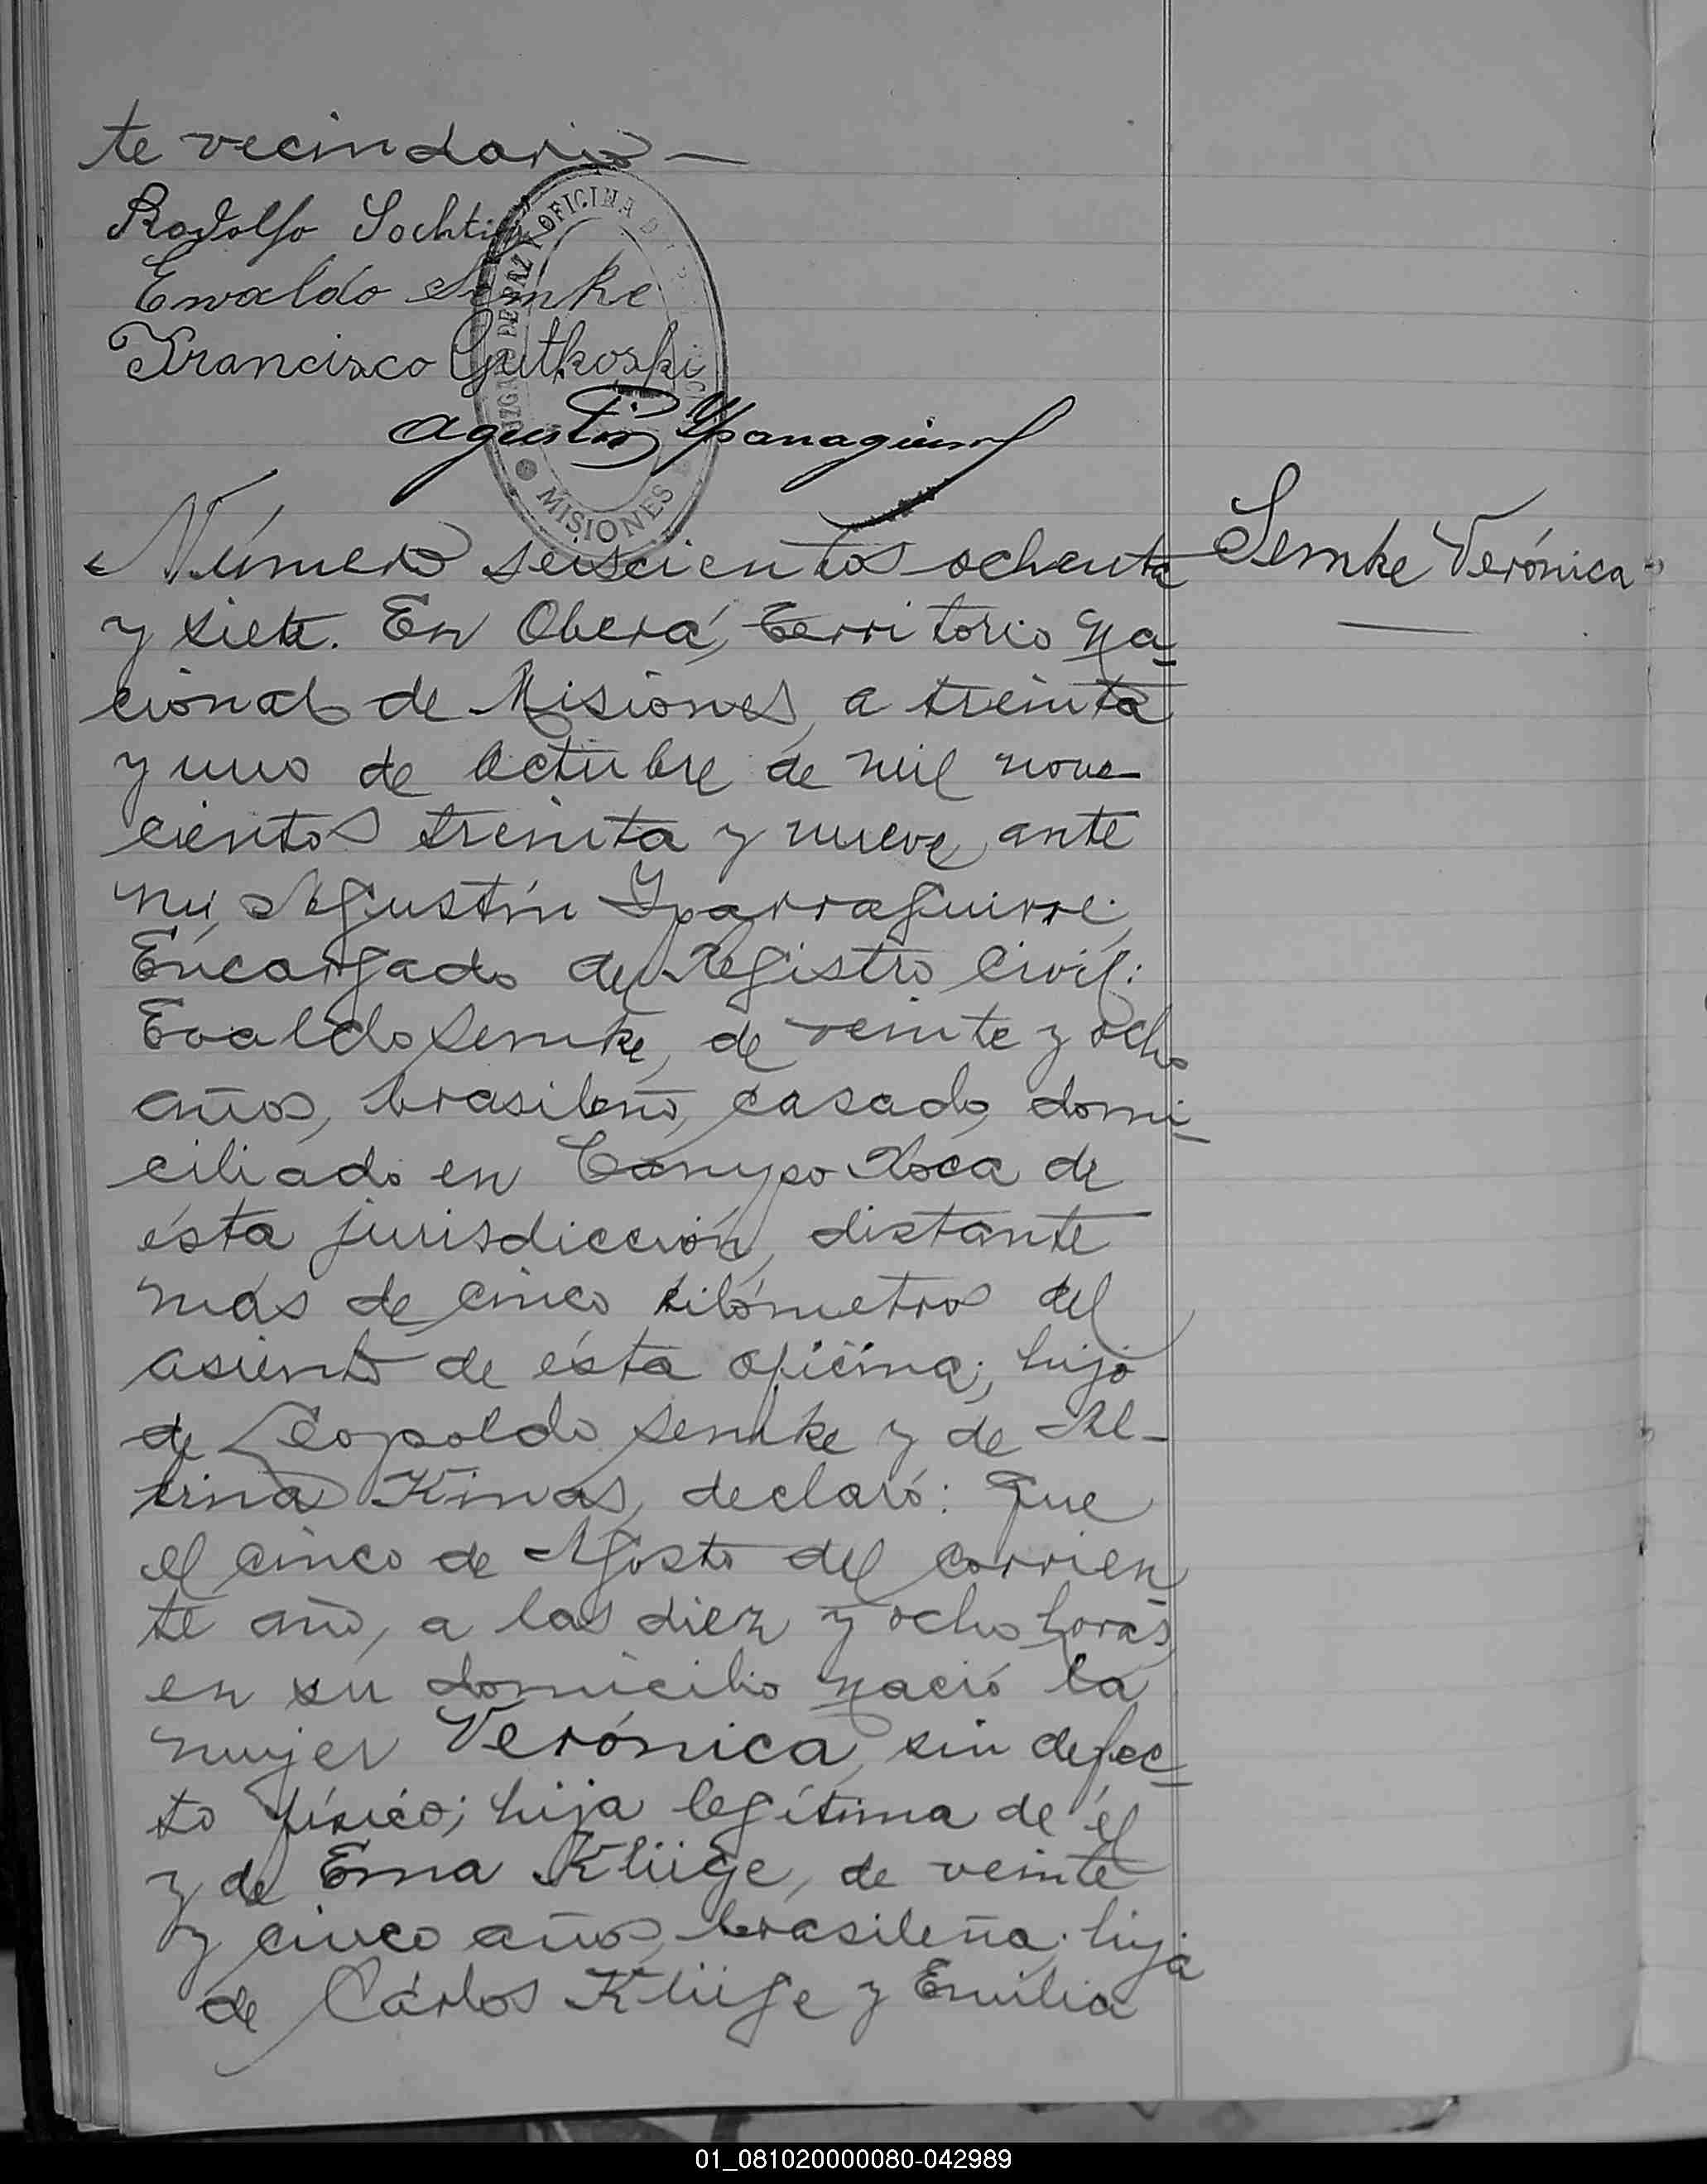 te vecindario —
Rodolfo Sochting
Ewaldo Semke
Francisco Gutkoski
Agustín Yparraguirre
JUZGADO DE PAZ Y OFICINA D
MISIONES
Número seiscientos ochenta
Semke Verónica
y siete. En Oberá, Territorio Na-
cional de Misiones, a treinta
y uno de Octubre de mil nove
cientos treinta y nueve, ante
mí, Agustín Yparraguirre,
Encargado del Registro Civil:
Evaldo Semke, de veinte y ocho
años, brasileño, casado, domi-
ciliado en Campo Roca de
ésta jurisdicción, distante
más de cinco kilómetros del
asiento de ésta oficina; hijo
de Leopoldo Semke y de Al-
Kinas, declaró: Que
el cinco de Agosto del corrien
te año, a las diez y ocho horas,
en su domicilio nació la
mujer Verónica, sin defec-
to físico; hija legítima de él
y de Ema Klüge, de veinte
y cinco años, brasileña; hija
de Cárlos Klüge y Emilia
01_081020000080-042989